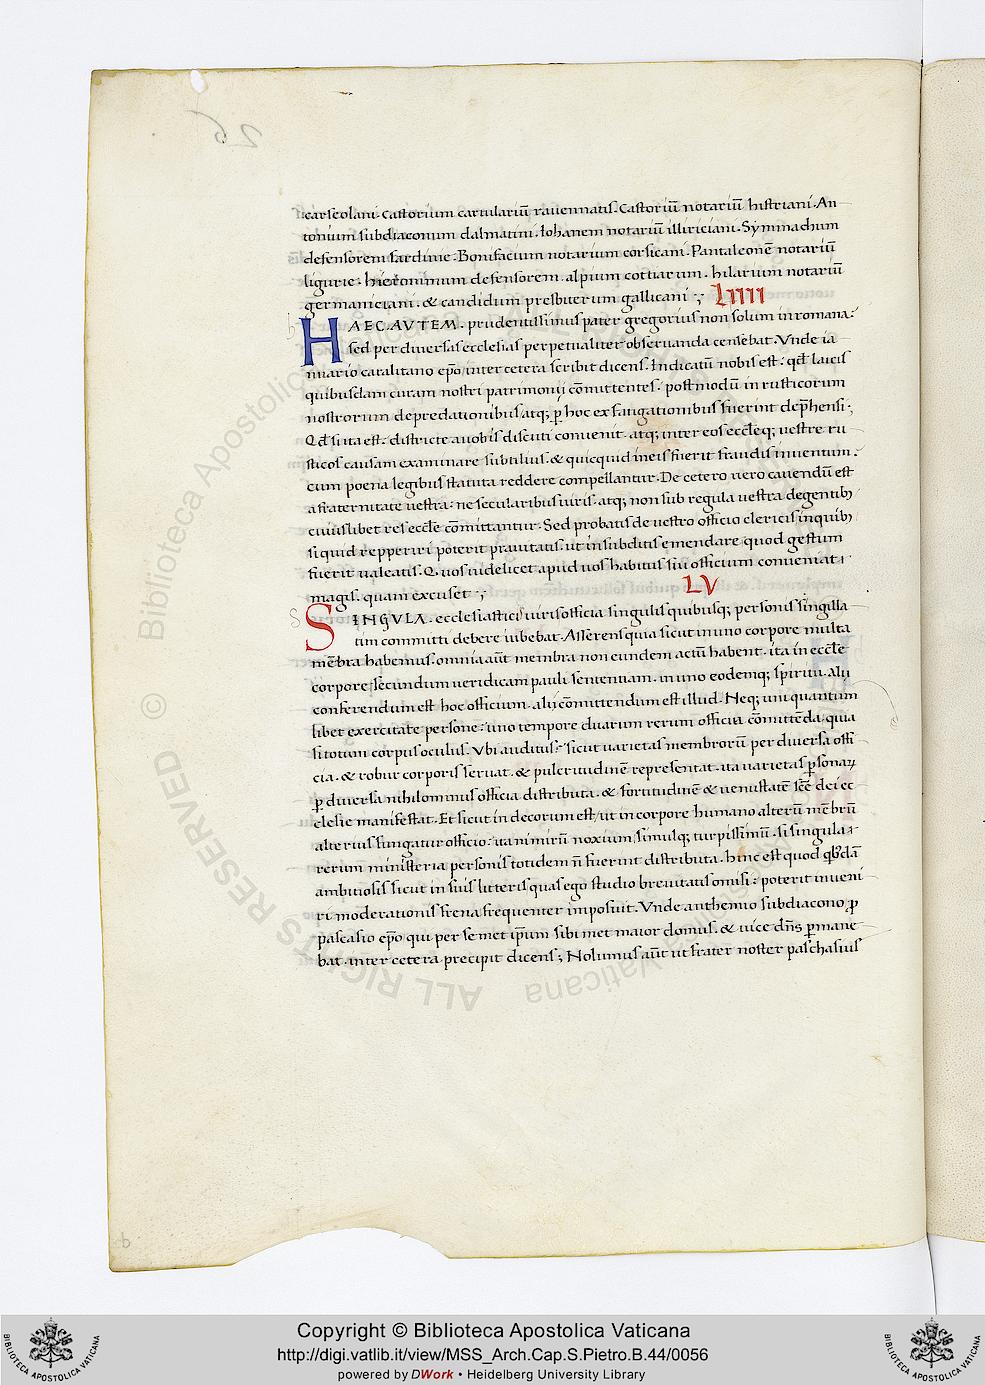 26
carseolani. Castorium cartulariū rauennatis. Castoriū notariū histriani. An
tonium subdiaconum dalmatini. Iohanem notariū illiriciani. Symmachum
defensorem sardinie. Bonifacium notarium corsicani. Pantaleonē notariū
ligurie. hieronimum defensorem. alpium cottiarum. hilarium notariū
germaniciani. & candidum presbiterum gallicani ; LIIII
HAEC. AVTEM. prudentissimus pater gregorius non solum in romana.
sed per diuersas ecclesias perpetualiter obseruanda censebat. Vnde ia
nuario caralitano ep̄o inter cetera scribit dicens. Indicatū nobis est. qd̄ laicis
quibusdam curam nostri patrimonij cōmittentes. postmodū in rusticorum
nostrorum depredationibus atq; p̱ hoc ex fatigationibus fuerint dep̄hensi.
Qd̄ si ita est. districte a uobis discuti conuenit. atq; inter eos eccl̄eq; uestre ru
sticos causam examinare subtilius. & quicquid in eis fuerit fraudis inuentum.
cum poena legibus statuta reddere compellantur. De cetero uero cauendū est
a fraternitate uestra. ne secularibus uiris. atq; non sub regula uestra degentib;
cuiuslibet res eccl̄e cōmittantur. Sed probatis de uestro officio clericis in quib;
si quid repperiri poterit prauitatis. ut in subditis emendare quod gestum
fuerit ualeatis. Q. uos uidelicet apud uos habitus sui officium conueniat
magis. quam excuset ; LV
SINGVLA. ecclesiastici iuris officia singulis quibusq; personis singilla
tim committi debere iubebat. Asserens quia sicut in uno corpore multa
mēbra habemus. omnia aūt membra non eundem actū habent. ita in eccl̄e
corpore secundum ueridicam pauli sententiam. in uno eodemq; spiritu. alii
conferendum est hoc officium. alij cōmittendum est illud. Neq; uni quantum
libet exercitate persone. uno tempore duarum rerum officia cōmittēda. quia
si totum corpus oculus. Vbi auditus? sicut uarietas membrorū per diuersa offi
cia. & robur corporis seruat. & pulcritudinē representat. ita uarietas p̱sonaꝝ
p̱ diuersa nihilominus officia distributa. & fortitudinē & uenustatē sc̄e dei ec
clesie manifestat. Et sicut indecorum est, ut in corpore humano alterū mēbrū
alterius fungatur officio. ita nimirū noxium, simulq; turpissimū. si singula
rerum ministeria personis totidem n̄ fuerint distributa. hinc est quod qb'dā
ambitiosis sicut in suis litteris quas ego studio breuitatis omisi. poterit inueni
ri moderationis frena frequenter imposuit. Vnde anthemio subdiacono, p̱
pascasio ep̄o qui per semet ip̄um sibimet maior domus. & uice dn̄s p̱mane
bat. inter cetera precipit dicens; Nolumus aūt ut frater noster paschasius
b
© Biblioteca Apostolica Vaticana
ALL RIGHTS RESERVED
Copyright © Biblioteca Apostolica Vaticana
http://digi.vatlib.it/view/MSS_Arch.Cap.S.Pietro.B.44/0056
powered by DWork • Heidelberg University Library
BIBLIOTECA APOSTOLICA VATICANA
BIBLIOTECA APOSTOLICA VATICANA